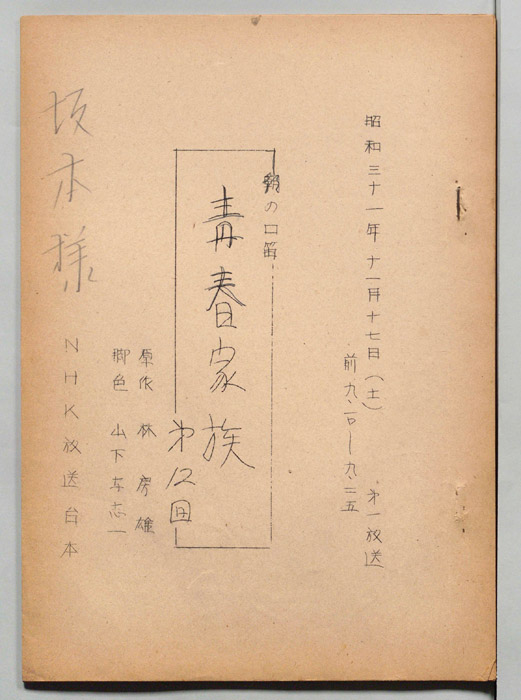 昭和三十一年十一月十七日(土)
前九.一〇ー九.二五
第一放送
朝の口笛
青春家族
第12回
原作 林 房雄
脚色 山下与志一
NHK放送台本
坂本様